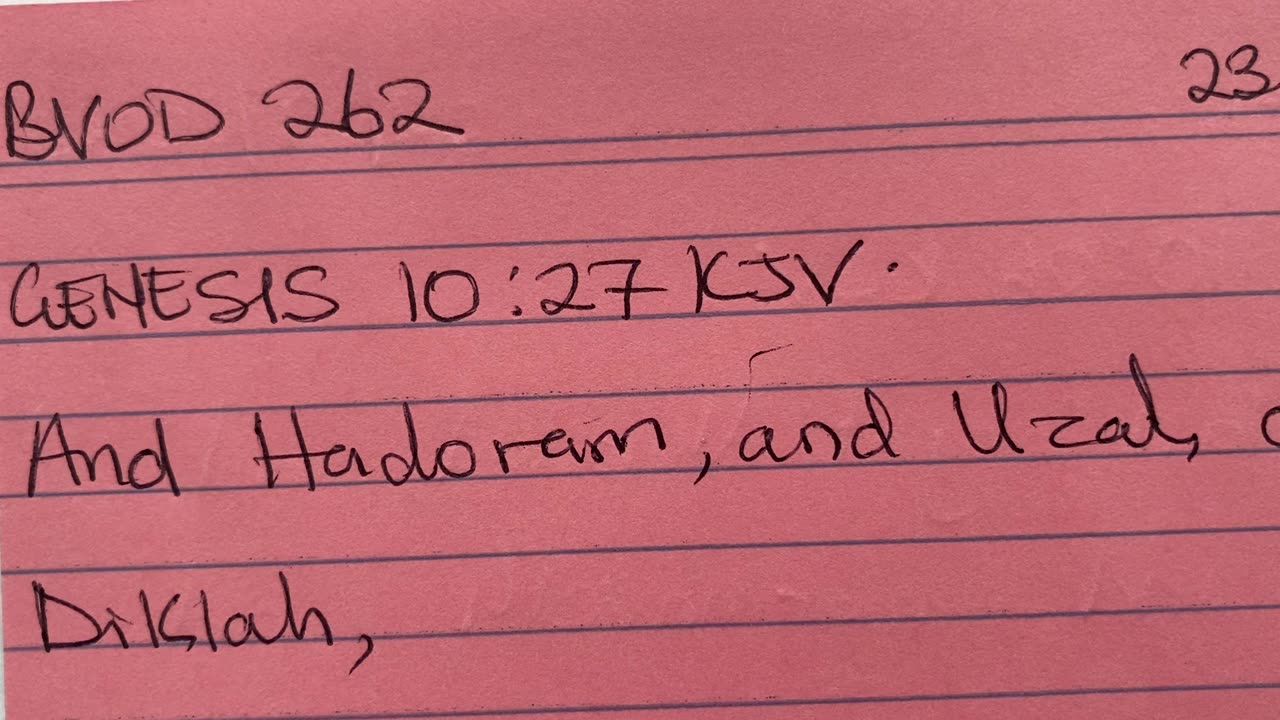 BVOD 262 23
GENESIS 10:27 KJV.
And Hadoram, and Uzal,
Diklah,